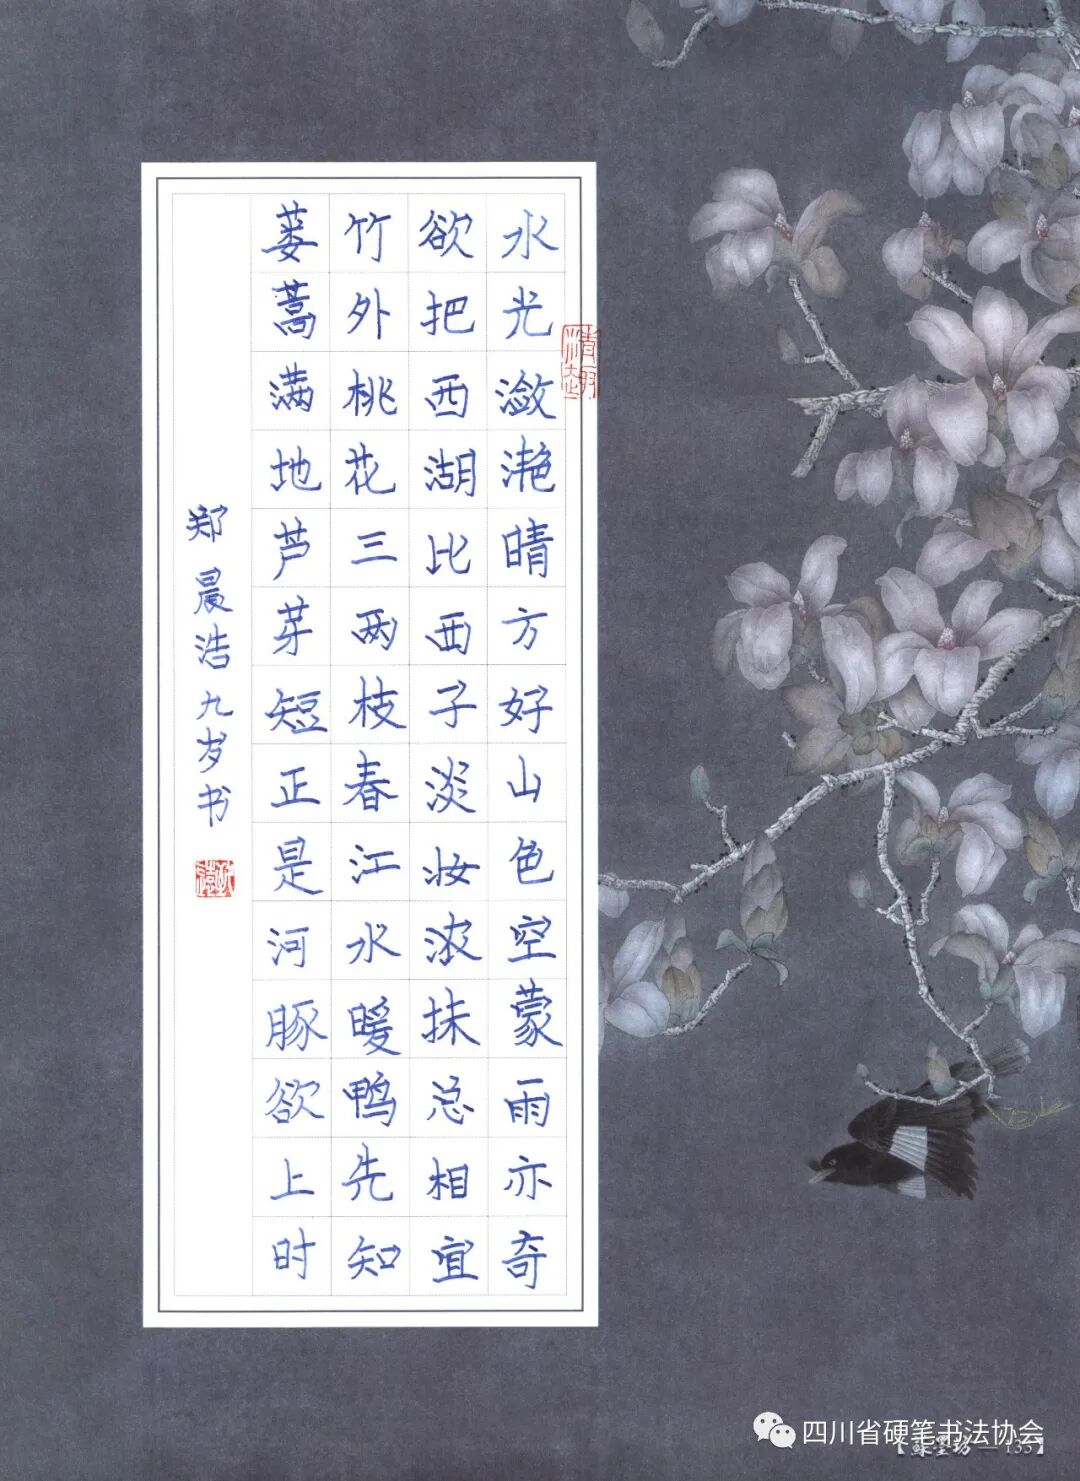 水光潋滟晴方好山色空蒙雨亦奇
欲把西湖比西子淡妆浓抹总相宜
竹外桃花三两枝春江水暖鸭先知
蒌蒿满地芦芽短正是河豚欲上时
郑晨浩九岁书
四川省硬笔书法协会
135